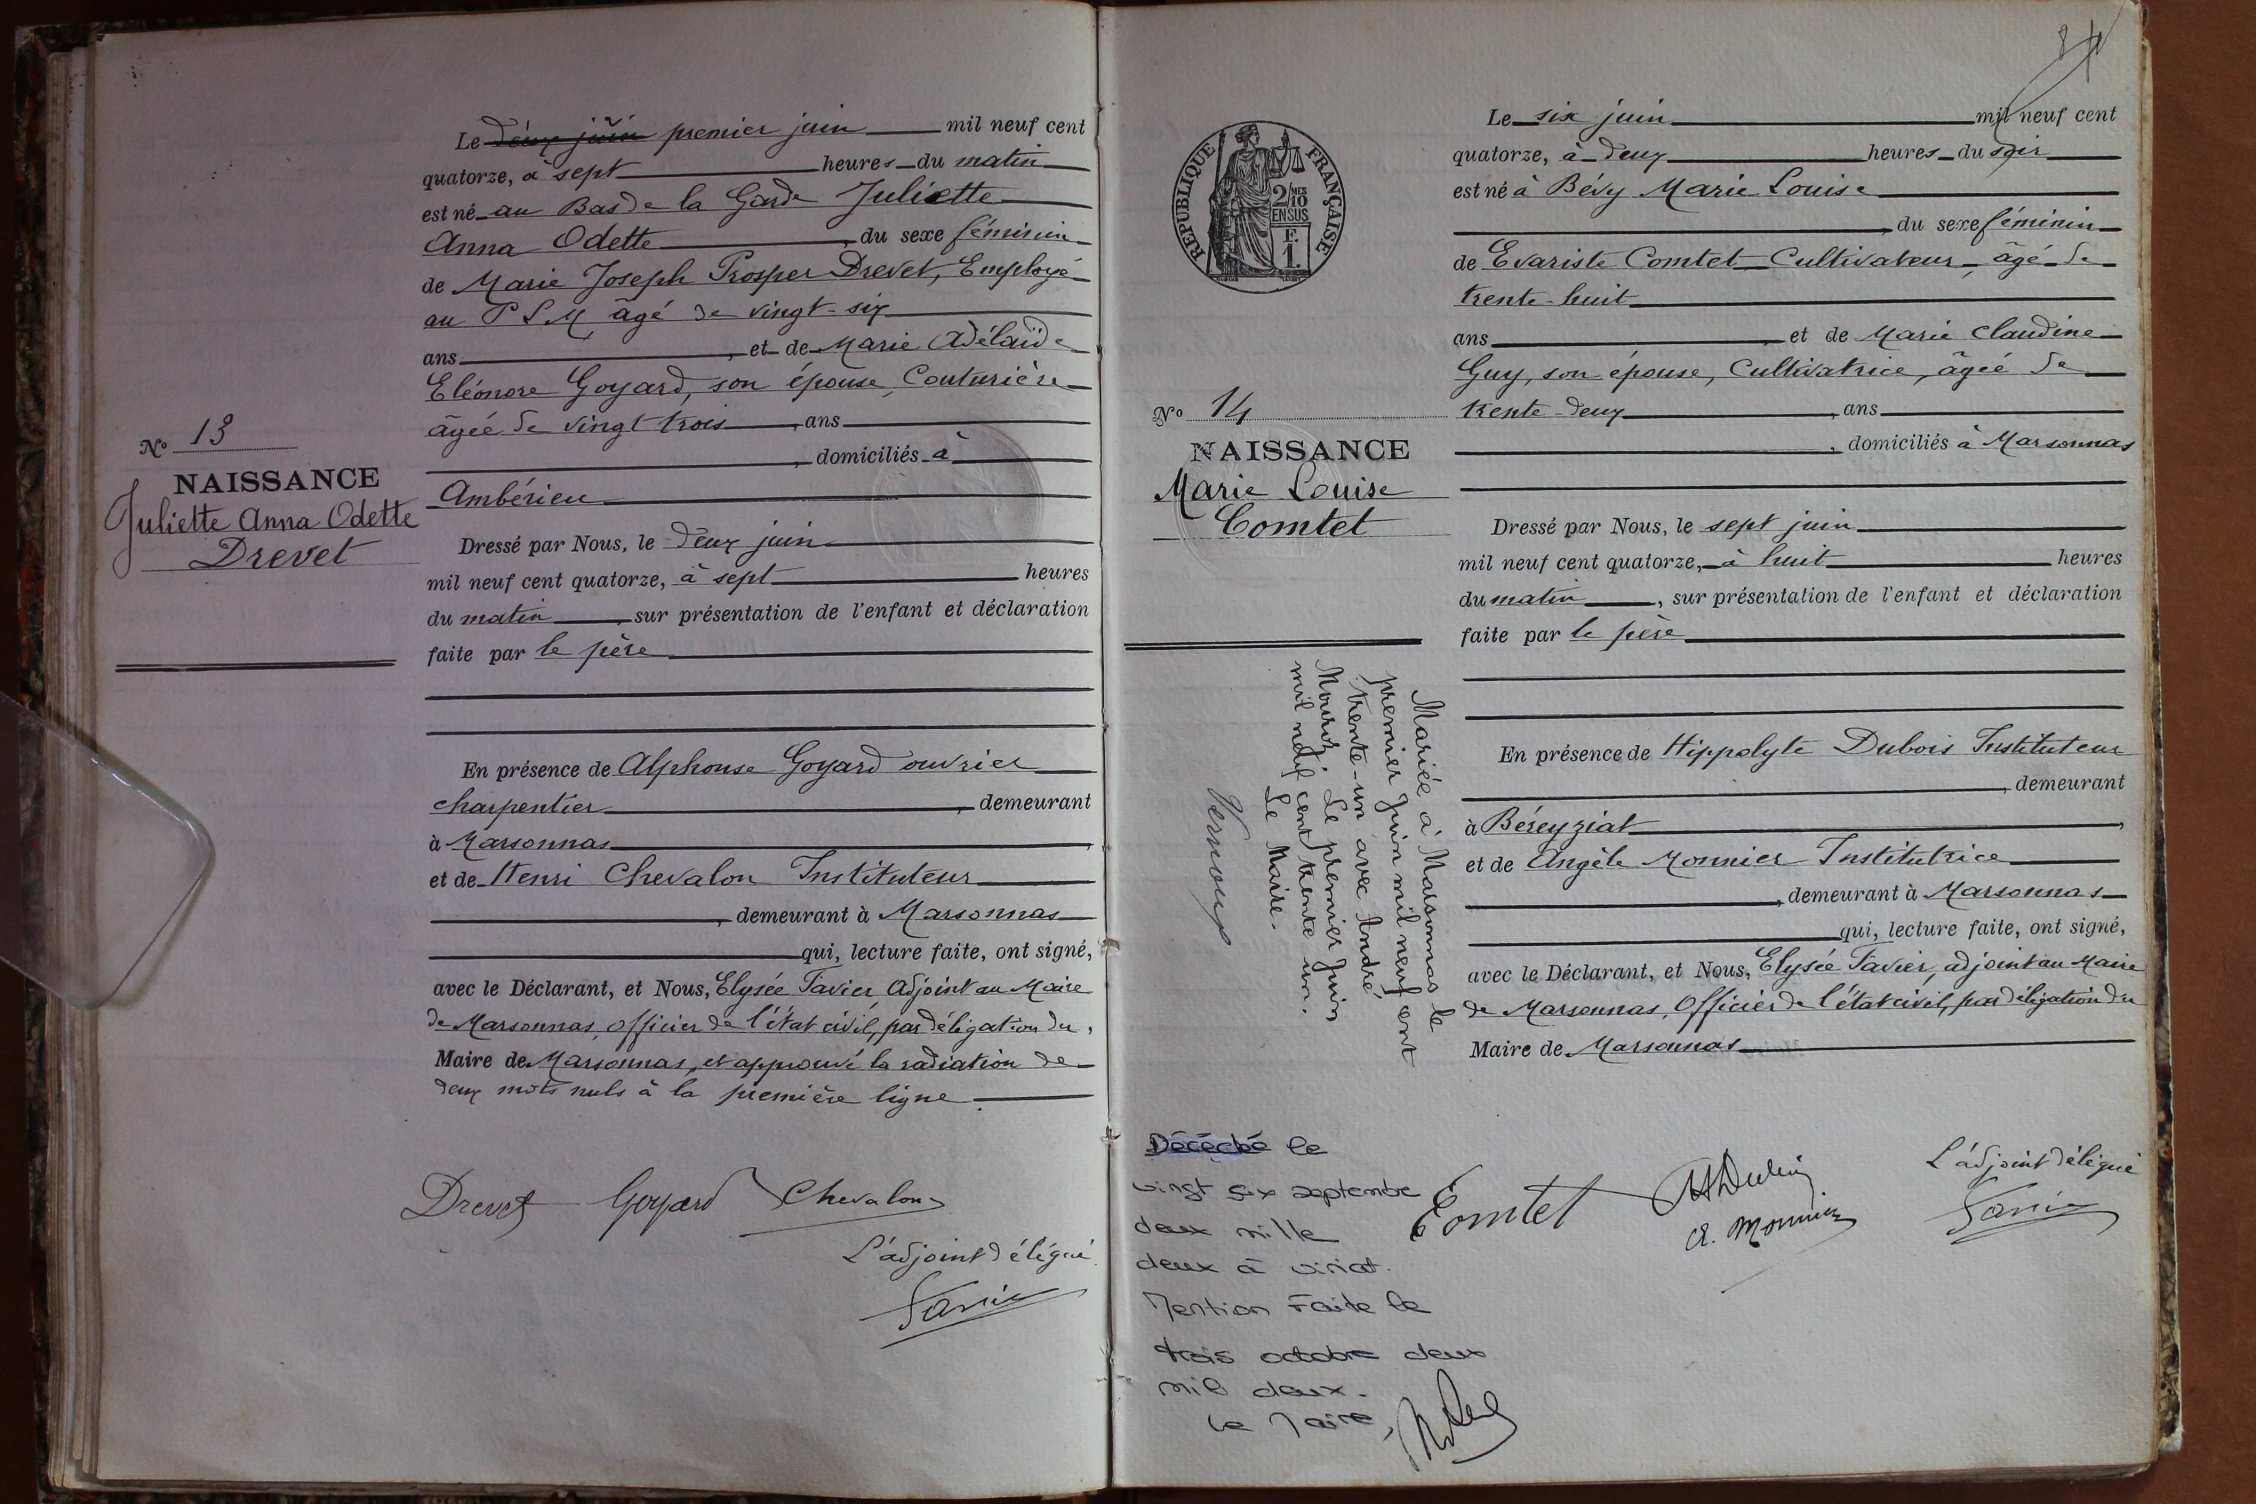 Le deux juin premier juin mil neuf cent
quatorze, à sept heures du matin
est né au Bas de la Garde Juliette
Anna Odette, du sexe féminin
de Marie Joseph Prosper Drevet, Employé
au P L M, âgé de vingt-six
ans, et de Marie Adélaïde
Eléonore Goyard, son épouse, Couturière
âgée de vingt trois, ans
, domiciliés à
Ambérieu
Nº 13
NAISSANCE
Juliette Anna Odette
Drevet
Dressé par Nous, le deux juin
mil neuf cent quatorze, à sept heures
du matin, sur présentation de l'enfant et déclaration
faite par le père
En présence de Alphonse Goyard ouvrier
charpentier, demeurant
à Marsonnas,
et de Henri Chevalon Instituteur
, demeurant à Marsonnas
qui, lecture faite, ont signé,
avec le Déclarant, et Nous, Elysée Favier Adjoint au Maire
de Marsonnas, officier de l'état civil, par délégation du,
Maire de Marsonnas, et approuvé la radiation de
deux mots nuls à la première ligne.
Drevet Goyard Chevalon
L'adjoint délégué
Favier
Le six juin mil neuf cent
quatorze, à deux heures du soir
est né à Bévy Marie Louise
, du sexe féminin
de Evariste Comtet Cultivateur, âgé de
trente-huit
ans, et de Marie Claudine
Guy, son épouse, Cultivatrice, âgée de
trente-deux, ans
, domiciliés à Marsonnas
RÉPUBLIQUE FRANÇAISE
2/10
MES
EN SUS
F.
1.
Nº 14
NAISSANCE
Marie Louise
Comtet
Dressé par Nous, le sept juin
mil neuf cent quatorze, à huit heures
du matin, sur présentation de l'enfant et déclaration
faite par le père
En présence de Hippolyte Dubois Instituteur
, demeurant
à Béreyziat,
et de Angèle Monnier Institutrice
, demeurant à Marsonnas
qui, lecture faite, ont signé,
avec le Déclarant, et Nous, Elysée Favier, adjoint au Maire
de Marsonnas, Officier de l'état civil, par délégation du
Maire de Marsonnas
Mariée à Marsonnas le
premier Juin mil neuf cent
trente-un avec André
Mouroz. Le premier Juin
mil neuf cent trente un.
Le Maire.
Vernoux
Décédée le
vingt six septembre
deux mille
deux à Viriat.
Mention Faite le
trois octobre deux
mil deux.
Le Maire,
Comtet
A. Monnier
L'adjoint délégué
Favier